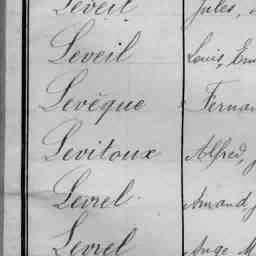 Leveil Jules,
Leveil Louis,
Levêque Fernan
Levitoux Alfred,
Levrel Amand,
Levrel Ange